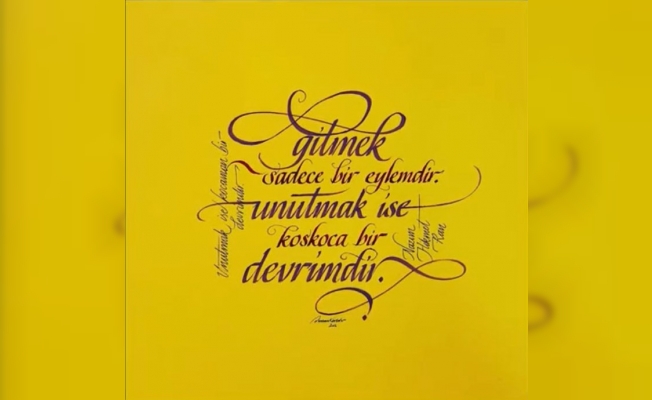 gitmek
sadece bir eylemdir.
unutmak ise
koskoca bir
devrimdir.
Unutmak ise kocaman bir
devrimdir
Nazım
Hikmet
Ran